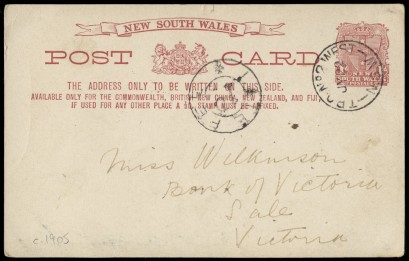 NEW SOUTH WALES
POST CARD
THE ADDRESS ONLY TO BE WRITTEN ON THIS SIDE.
AVAILABLE ONLY FOR THE COMMONWEALTH, BRITISH NEW GUINEA, NEW ZEALAND, AND FIJI,
IF USED FOR ANY OTHER PLACE A ½D. STAMP MUST BE AFFIXED.
T.P.O. Nº2 WEST
Miss Wilkinson
Bank of Victoria
Sale
Victoria
c.1905